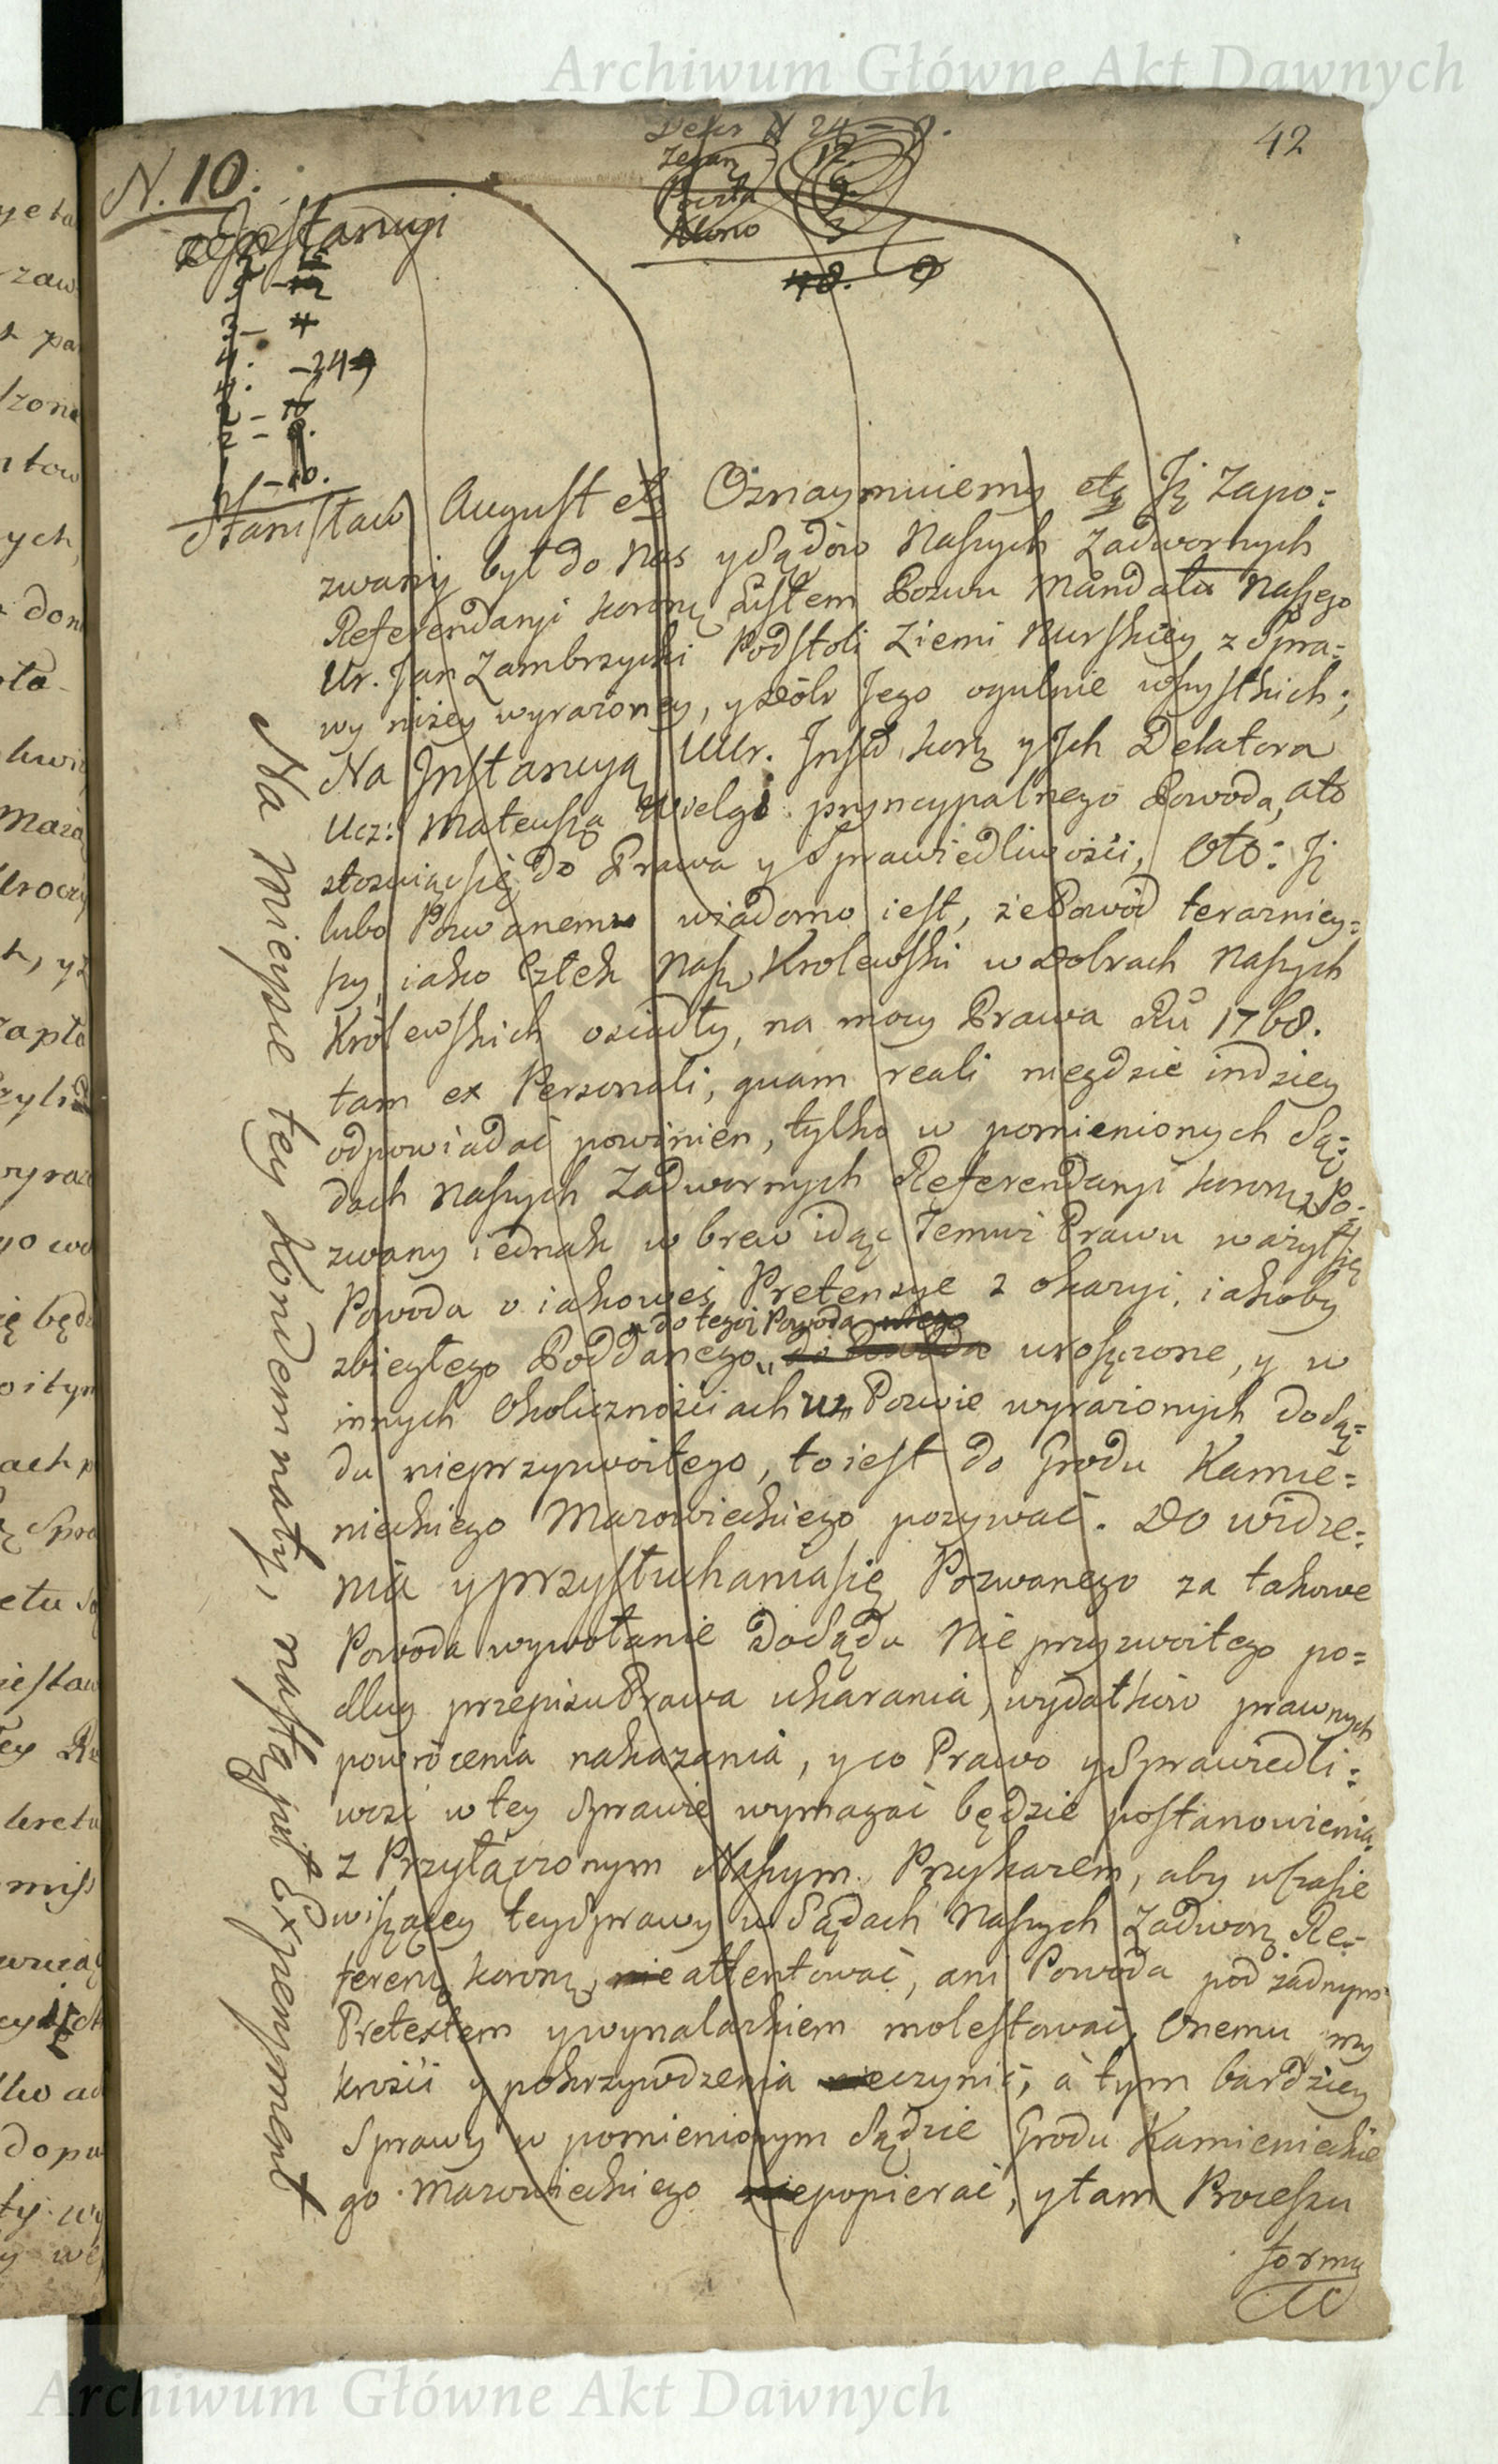 Archiwum Główne Akt Dawnych
42
N. 10.
Dekr 24 – 9.
Poczta 9.
3
48. 0
Instancyi
3 – 4
4. – 24
4.
2 –
2 – 8.
1 – 10.
Stanisław August etc Oznaymuiemy etc Jż Zapo=
zwany był do Nas y Sądów Naszych Zadwornych
Referendaryi koronę Listem Pozwu Mandatu Naszego
Ur. Jan Zambrzycki Podstoli Ziemi Nurskiey z Spra=
wy niżey wyrażoney, y Dóbr Jego ogulnie wszystkich;
Na Jnstancyą UUr. Jnstd. korz y Jch Delatora
Ucz: Mateusza Wielgi pryncypalnego Powoda, ato
stosuiąc się do Prawa y Sprawiedliwości, Oto: Jż
lubo Pozwanemu wiadomo iest, że Powód terazniey=
szy, iako Człek Nasz Krolewski w Dobrach Naszych
Królewskich osiadły, na mocy Prawa Ru 1768.
tam ex Personali, quam reali niegdzie indziey
odpowiadać powinien, tylko w pomienionych Są=
dach Naszych Zadwornych Referendaryi koronz Po=
zwany iednak wbrew idąc Temuż Prawu ważył się
Powoda o iakoweś Pretensye z okazyi, iakoby
do tegoż Powoda
zbiegłego Poddanego do Powoda uroszczone, y w
innych Okolicznościach w Pozwie wyrażonych do Są=
du nieprzyzwoitego, to iest do Grodu Kamie=
nieckiego Mazowieckiego pozywać. Do widze=
nia y przysłuchania się Pozwanego za takowe
Powoda wywołanie do Sądu Nie przyzwoitego po=
dług przepisu Prawa ukarania, wydatków prawnych
powrócenia nakazania, y co Prawo y Sprawiedli=
wość w tey Sprawie wymagać będzie postanowienia.
z Przyłączonym Naszym Przykazem, aby w czasie
wiszącey tey Sprawy w Sądach Naszych Zadworz Re=
ferenz koronz, nie attentować, ani Powoda pod żadnym
Pretextem y wynalazkiem molestować, Onemu przy
krości y pokrzywdzenia nie czynić, à tym bardziey
Sprawy w pomienionym Sądzie Grodu Kamienieckie
go Mazowieckiego nie popierać, y tam Processu
formy
Na mieysce tey kondemnaty, nastąpił Experyment
Archiwum Główne Akt Dawnych